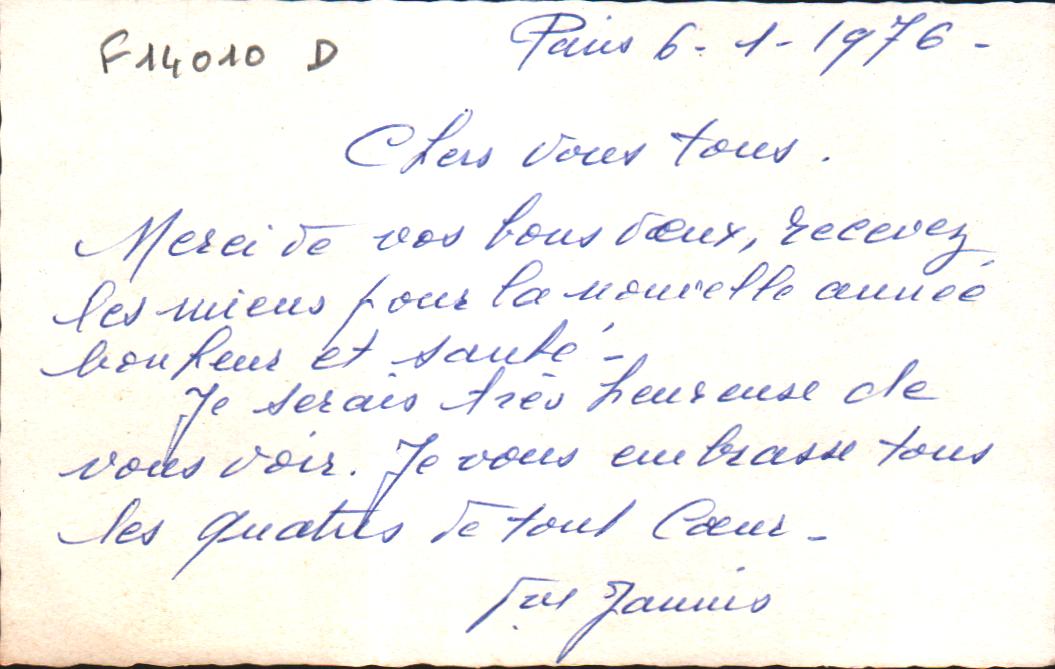 F14010 D
Paris 6-1-1976-
Chers vous tous.
Merci de vos bons vœux, recevez
les miens pour la nouvelle année
bonheur et santé-
Je serais très heureuse de
vous voir. Je vous embrasse tous
les quatres de tout Cœur-